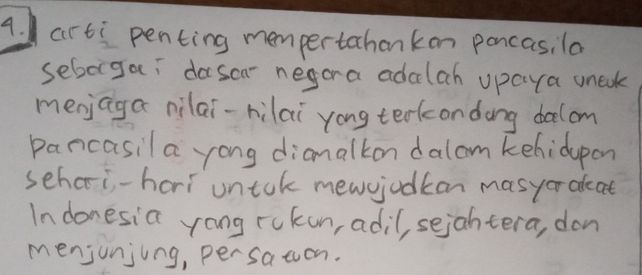 4. arti penting mempertahankan pancasila
sebagai dasar negara adalah upaya untuk
menjaga nilai-nilai yang terkandung dalam
pancasila yang diamalkan dalam kehidupan
sehari-hari untuk mewujudkan masyarakat
Indonesia yang rukun, adil, sejahtera, dan
menjunjung, persatuan.